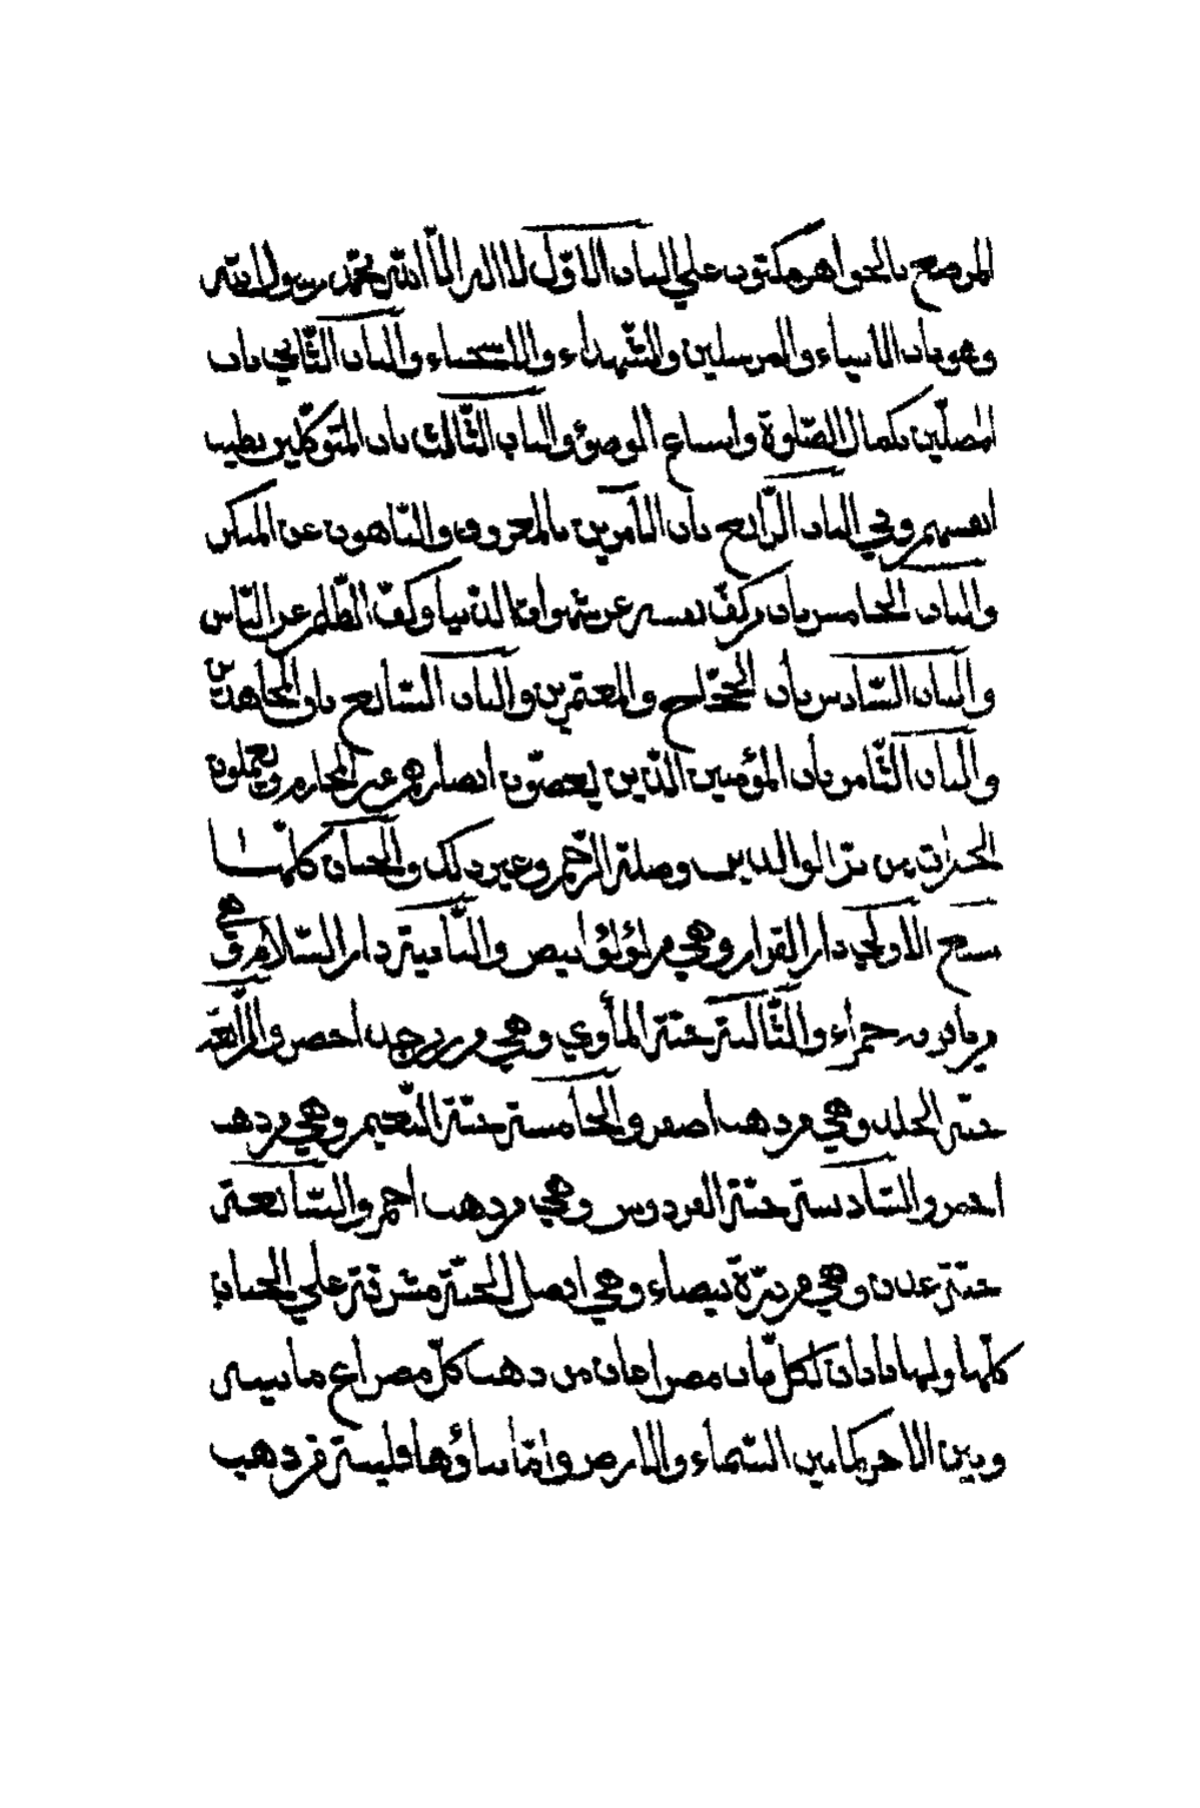 المرصع بالجواهر مكتوب على الباب الاوّل لا اله الّا الله محمّد رسول الله
وهو باب الانبياء والمرسلين والشّهداء والاسخياء والباب الثّاني باب
المصلّين بكمال الصّلوة واسباغ الوضوء والباب الثّالث باب المتوكّلين بطيب
انفسهم وفي الباب الرّابع باب الآمرين بالمعروف والنّاهون عن المنكر
والباب الخامس باب من كفّ نفسه عن شهوات الدّنيا وكفّ الظّلم عن النّاس
والباب السّادس باب الحجّاج والمعتمرين والباب السّابع باب المجاهدين
والباب الثّامن باب المؤمنين الذّين يغضّون ابصارهم عن المحارم ويعملون
الخيرات من برّ الوالدين وصلة الرّحم وغير ذلك والجنان كلّها
سبع الاولي دار القرار وهي من لؤلؤ ابيض والثّانية دار السّلام وهي
من ياقوت حمراء والثّالثة جنّة المأوي وهي من زبرجد اخضر والرّابعة
جنّة الخلد وهي من ذهب اصفر والخامسة جنّة النّعيم وهي من ذهب
اخضر والسّادسة جنّة الفردوس وهي من ذهب احمر والسّابعة
جنّة عدن وهي من درّة بيضاء وهي افضل الجنّة مشرفة علي الجنان
كلّها ولها بابان لكلّ باب مصراعان من ذهب كلّ مصراع ما بينه
وبين الاخر كما بين السّماء والارض وامّا بناؤها فلبنة من ذهب